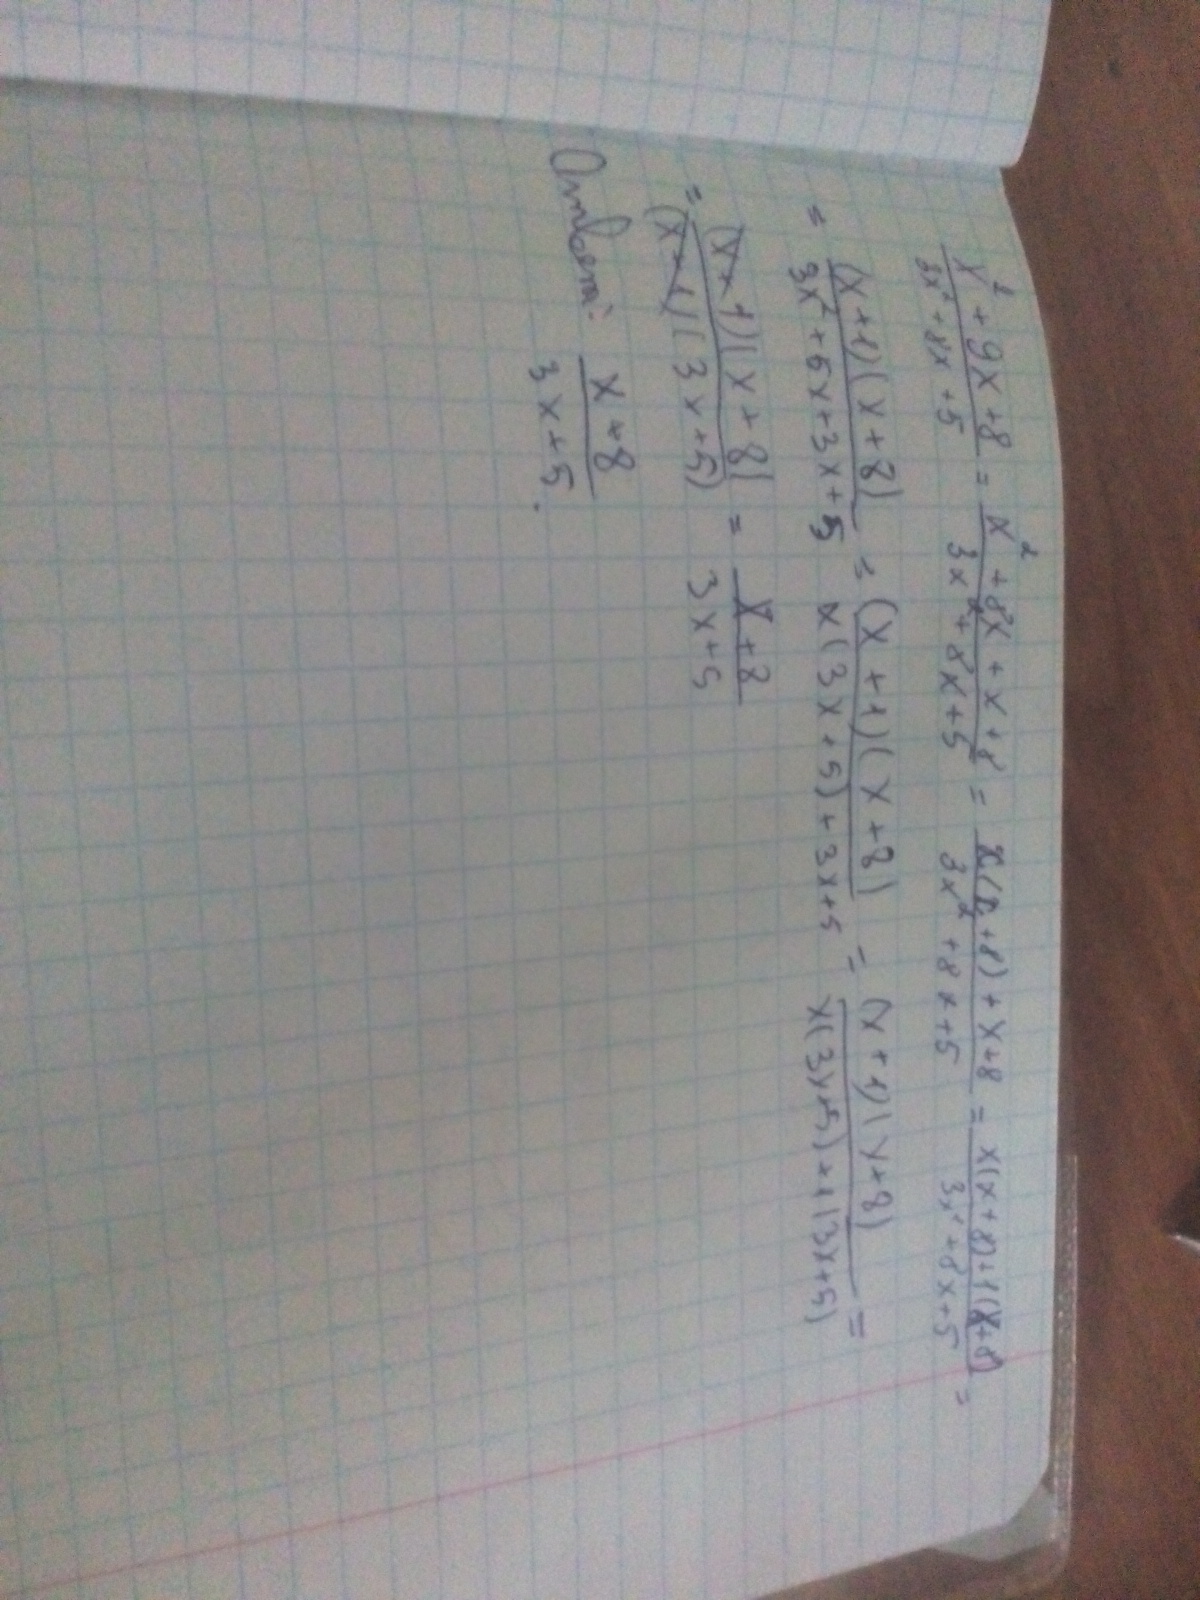 x² + 9x + 8 / 3x² + 8x + 5 = x² + 8x + x + 8 / 3x² + 8x + 5 = x(x + 8) + x + 8 / 3x² + 8x + 5 = x(x + 8) + 1(x + 8) / 3x² + 8x + 5 =
= (x + 1)(x + 8) / 3x² + 5x + 3x + 5 = (x + 1)(x + 8) / x(3x + 5) + 3x + 5 = (x + 1)(x + 8) / x(3x + 5) + 1(3x + 5) =
= (x + 1)(x + 8) / (x + 1)(3x + 5) = x + 8 / 3x + 5
Ответ: x + 8 / 3x + 5.